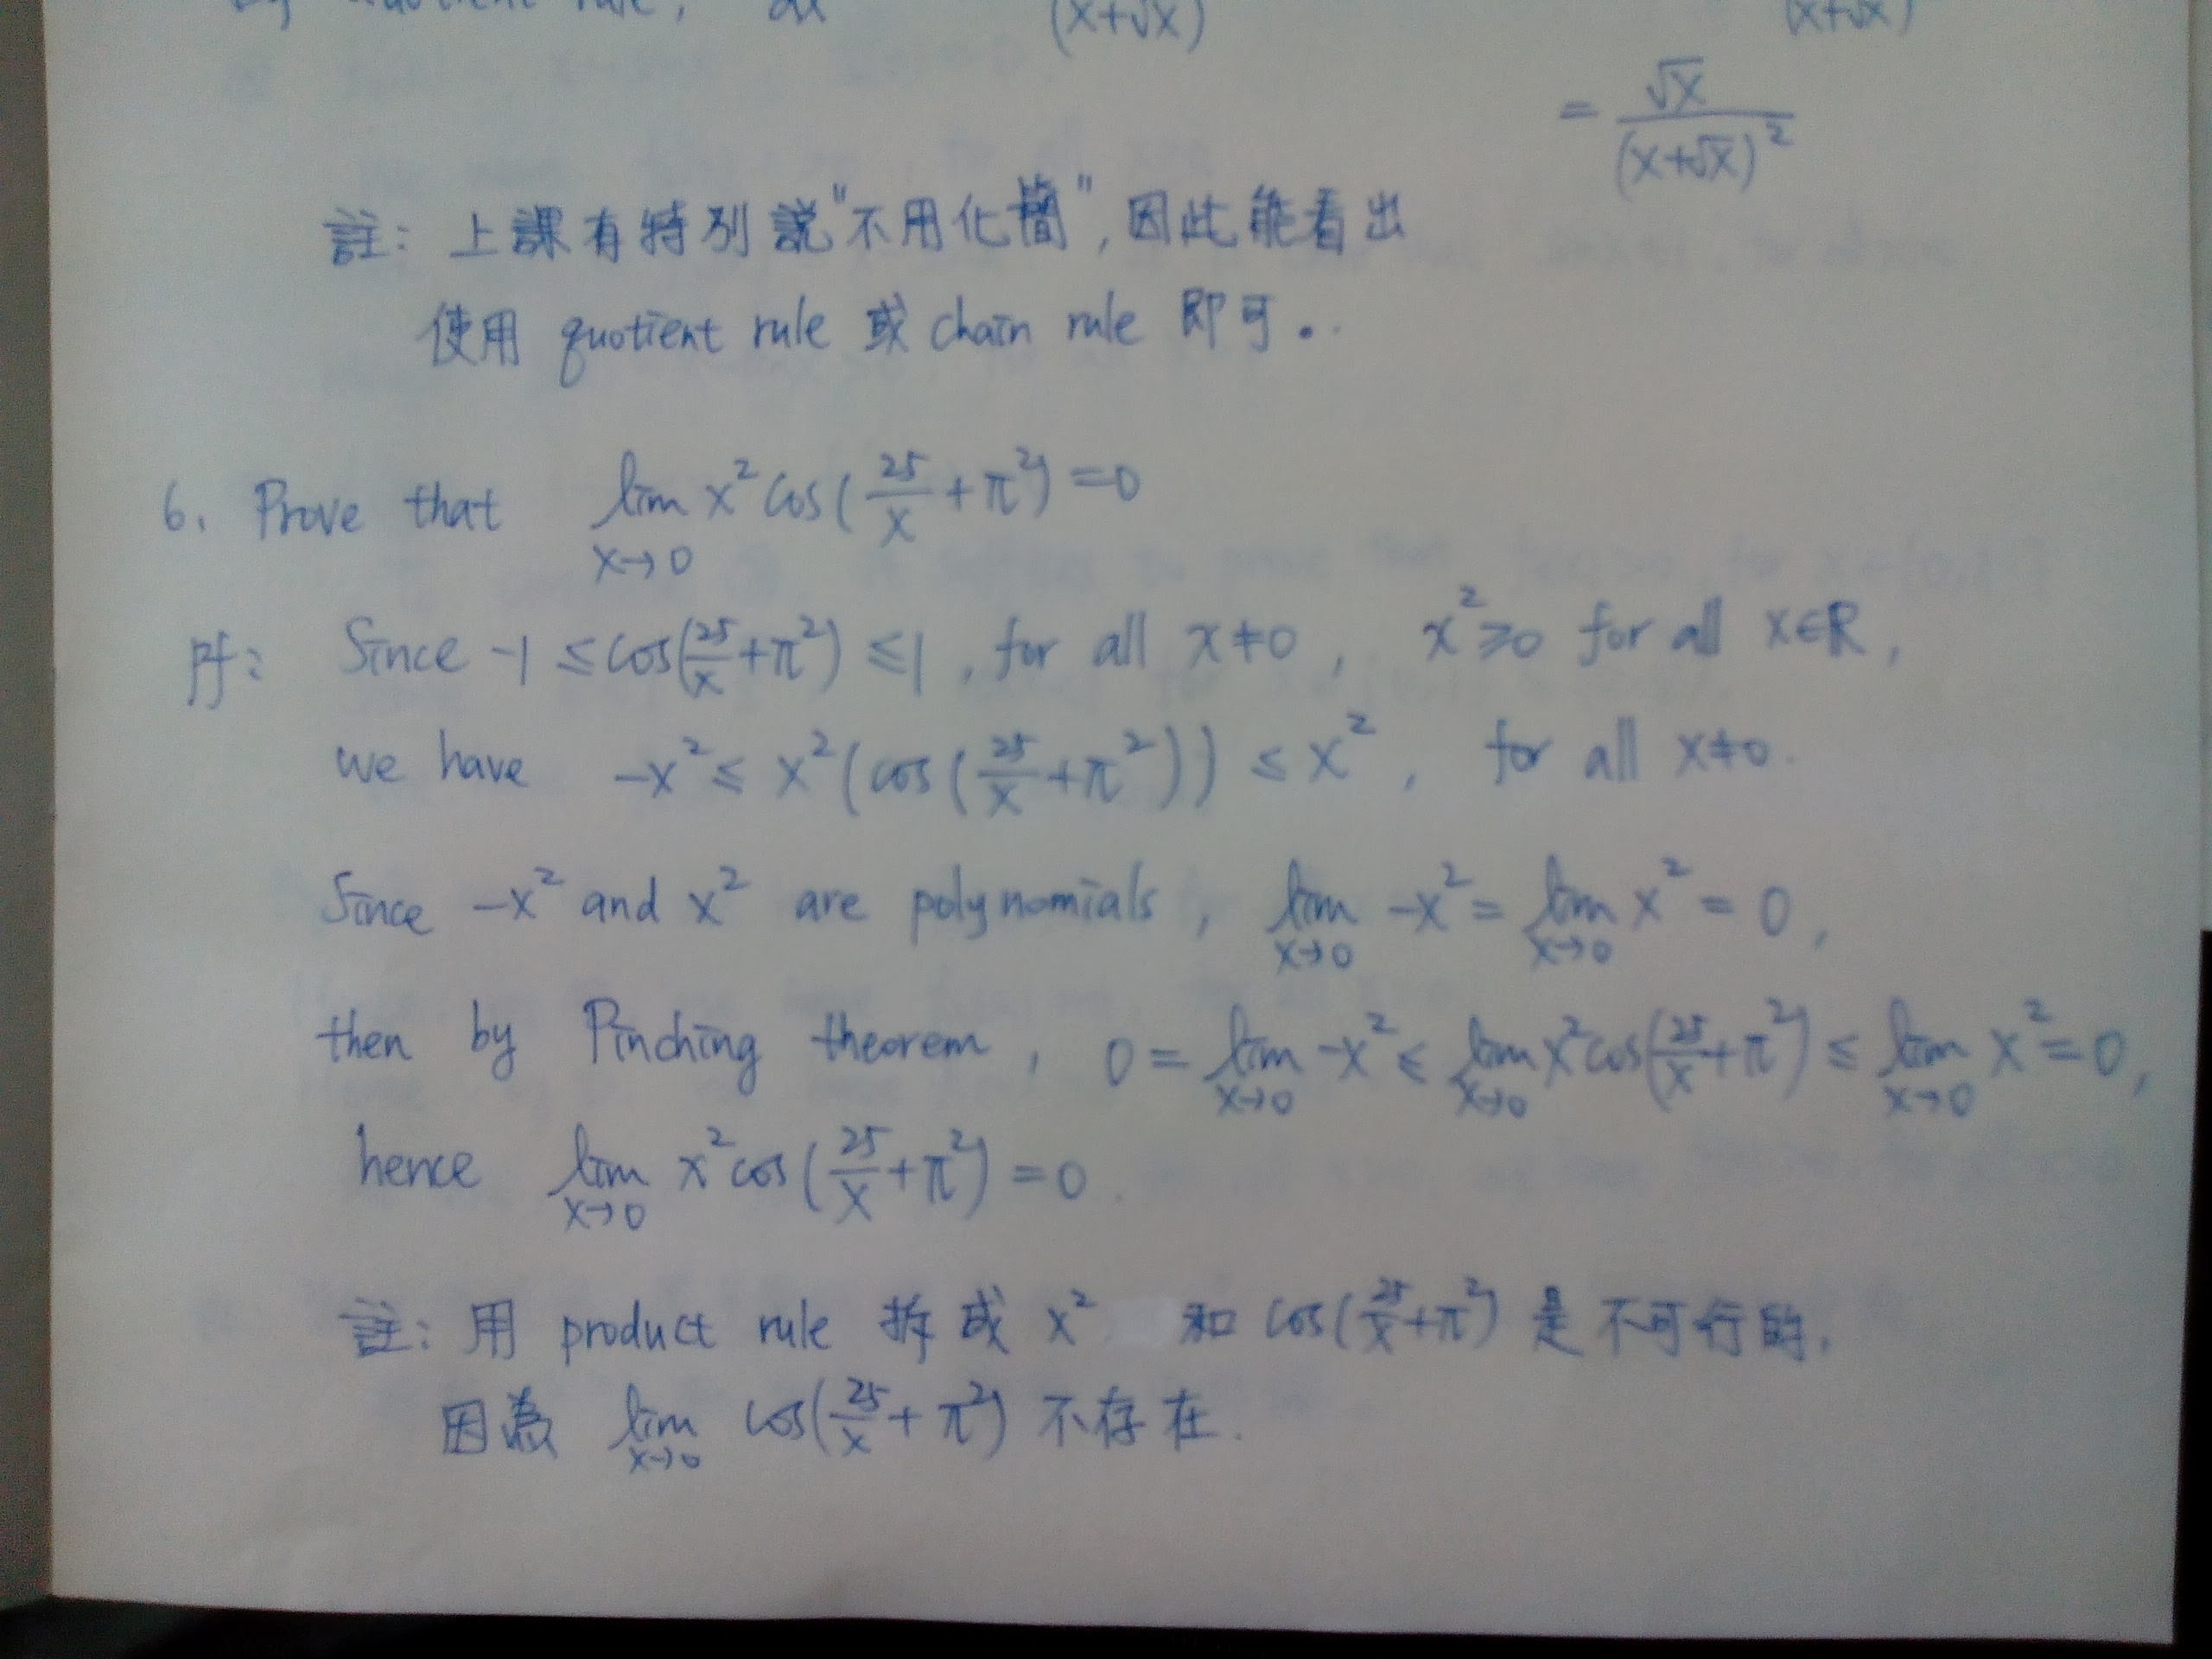 by quotient rule, dx (x+√x) (x+√x)
= √x / (x+√x)²
註: 上課有特別説"不用化簡",因此能看出
使用 quotient rule 或 chain rule 即可。
6. Prove that lim x→0 x² cos(25/x + π²) = 0
pf: Since -1 ≤ cos(25/x + π²) ≤ 1, for all x≠0, x² ≥ 0 for all x∈R,
we have -x² ≤ x²(cos(25/x + π²)) ≤ x², for all x≠0.
Since -x² and x² are polynomials, lim x→0 -x² = lim x→0 x² = 0,
then by Pinching theorem, 0 = lim x→0 -x² ≤ lim x→0 x² cos(25/x + π²) ≤ lim x→0 x² = 0,
hence lim x→0 x² cos(25/x + π²) = 0.
註: 用 product rule 拆成 x² 和 cos(25/x + π²) 是不可行的.
因為 lim x→0 cos(25/x + π²) 不存在.